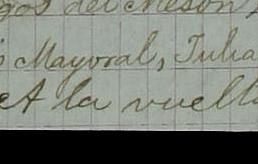 gos del Meson
Mayoral, Julia
A la vuelta